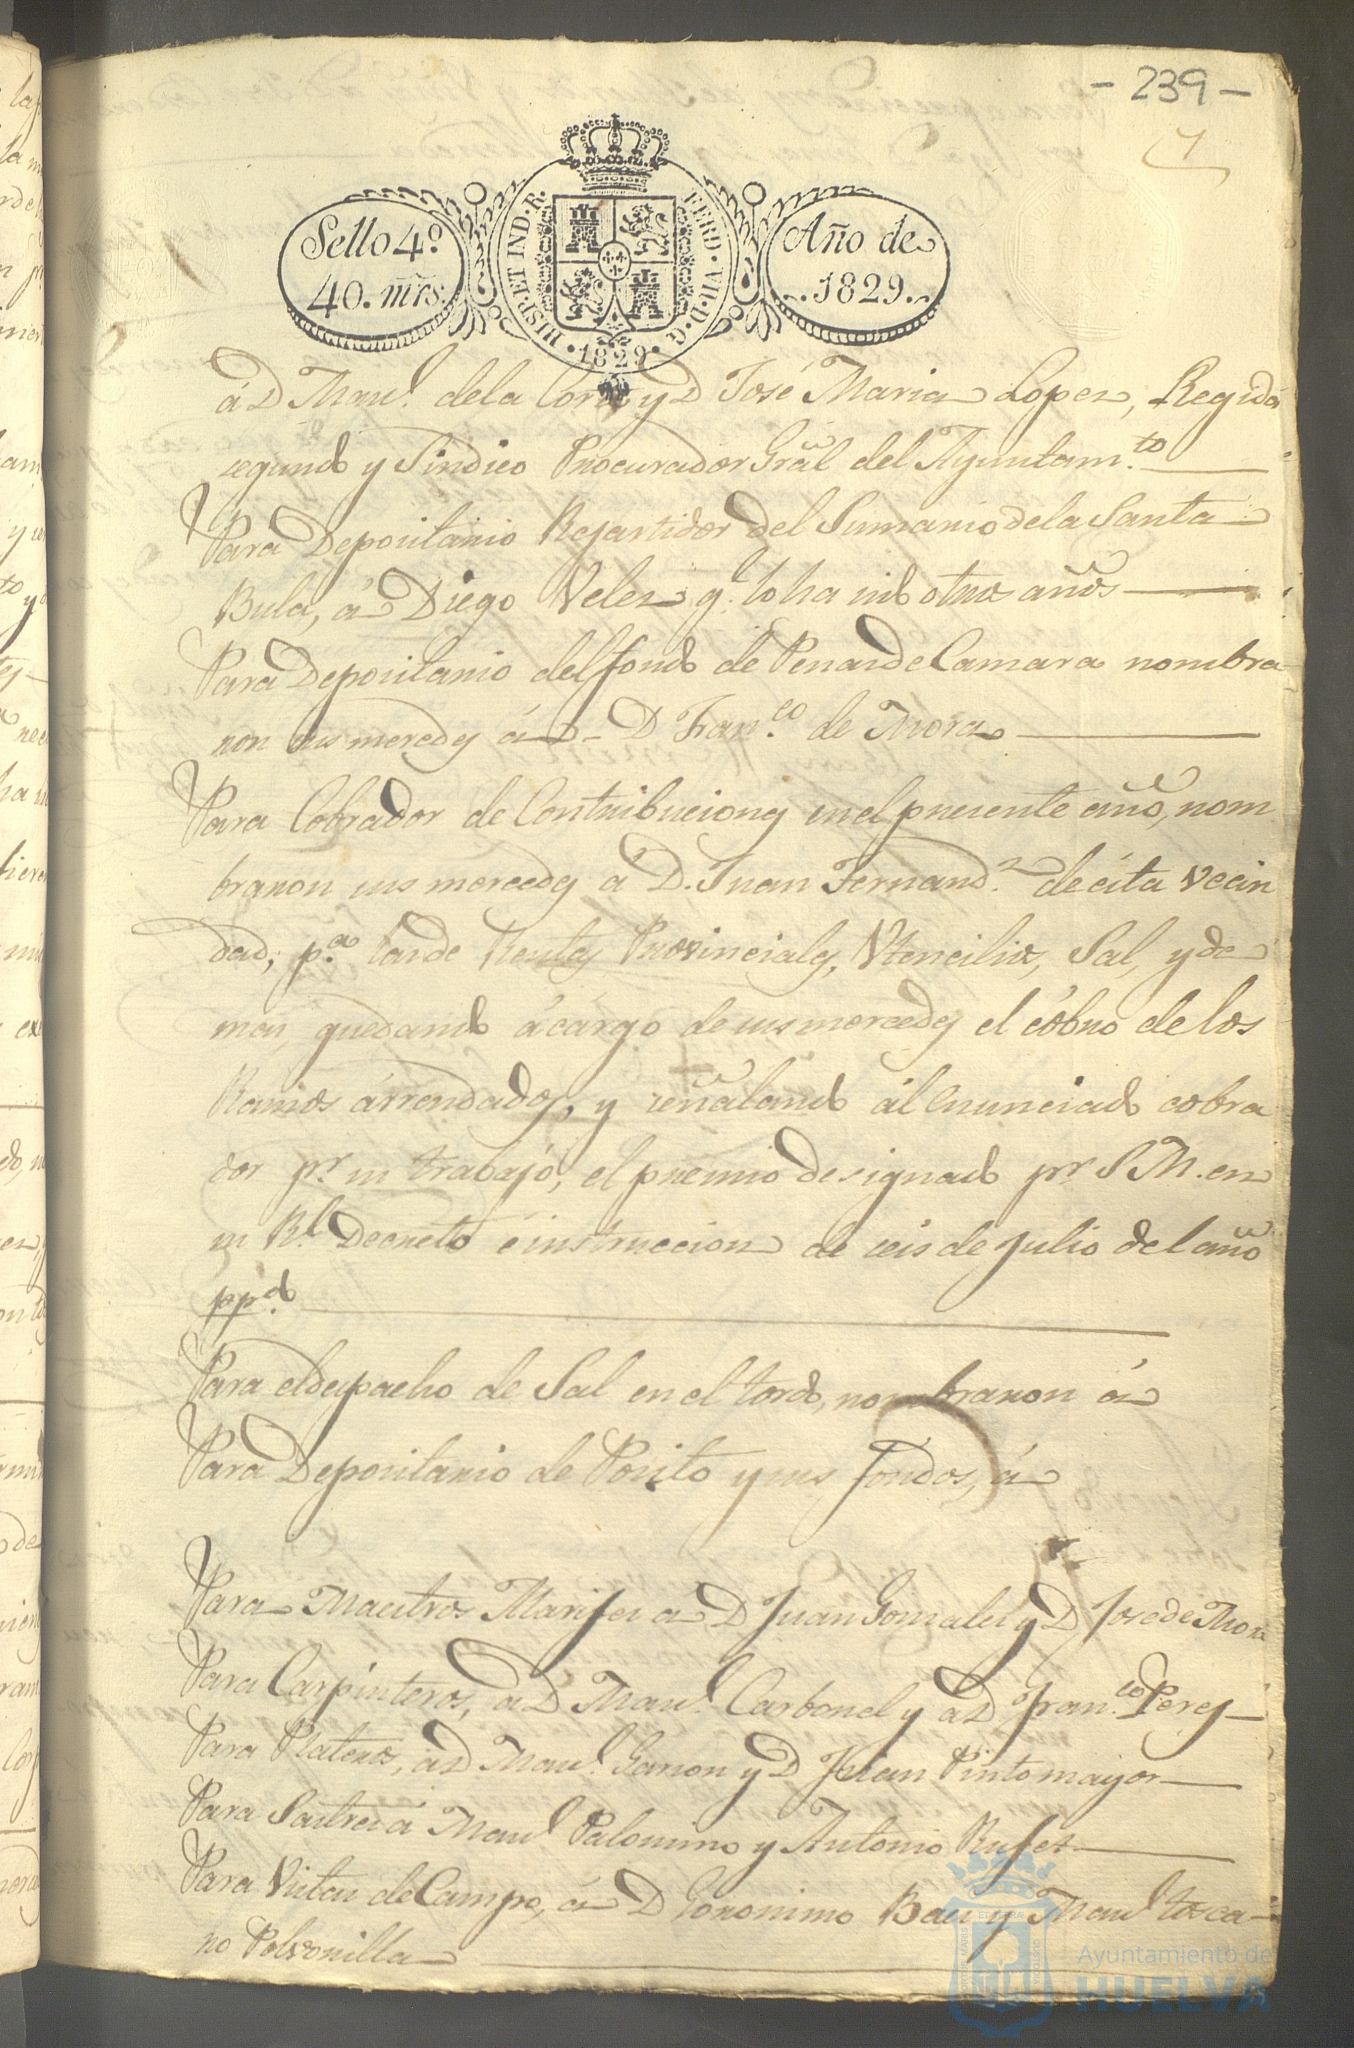 - 239 -
Sello 4.º
40. mrs.
HISP. ET IND. R.
FERD. VII. D. G.
· 1829 ·
Año de
1829.
á D Man.l dela Cora y D José Maria Lopez, Regidor
segundo y Sindico Procurador Gral del Ayuntam.to
Para Depositario Repartidor del Sumario dela Santa
Bula, á Diego Velez q. lo ha sido otros años
Para Depositario del fondo de Penas de Camara nombra
ron sus mercedes á D Fran.co de Mora
Para Cobrador de Contribuciones en el presente año, nom
braron sus mercedes á D. Juan Fernand.z de esta vecin
dad, p.a las de Rentas Provinciales, Utencilios, Sal, y de
mas, quedando á cargo de sus mercedes el cobro de los
Ramos arrendados, y señalando ál enunciado cobra
dor pr. su trabajo, el premio designado pr. S M. en
su Rl. Decreto é instruccion de seis de Julio del año
pp.do
Para el despacho de Sal en el tordo, nombraron á
Para Depositario de Posito y sus fondos, á
Para Maestros Alarifes a D Juan Gonzales y D Jose de Mora
Para Carpinteros, a D Man.l Carbonel y a D Fran.co Perez
Para Plateros, a D Man.l Garzon y D Juan Pinto mayor
Para Sastres á Man.l Palomino y Antonio Rufet
Para Vistas de Campo, á D Geronimo Baez y Man.l Tosca-
no Polvorilla
Ayuntamiento de
HUELVA